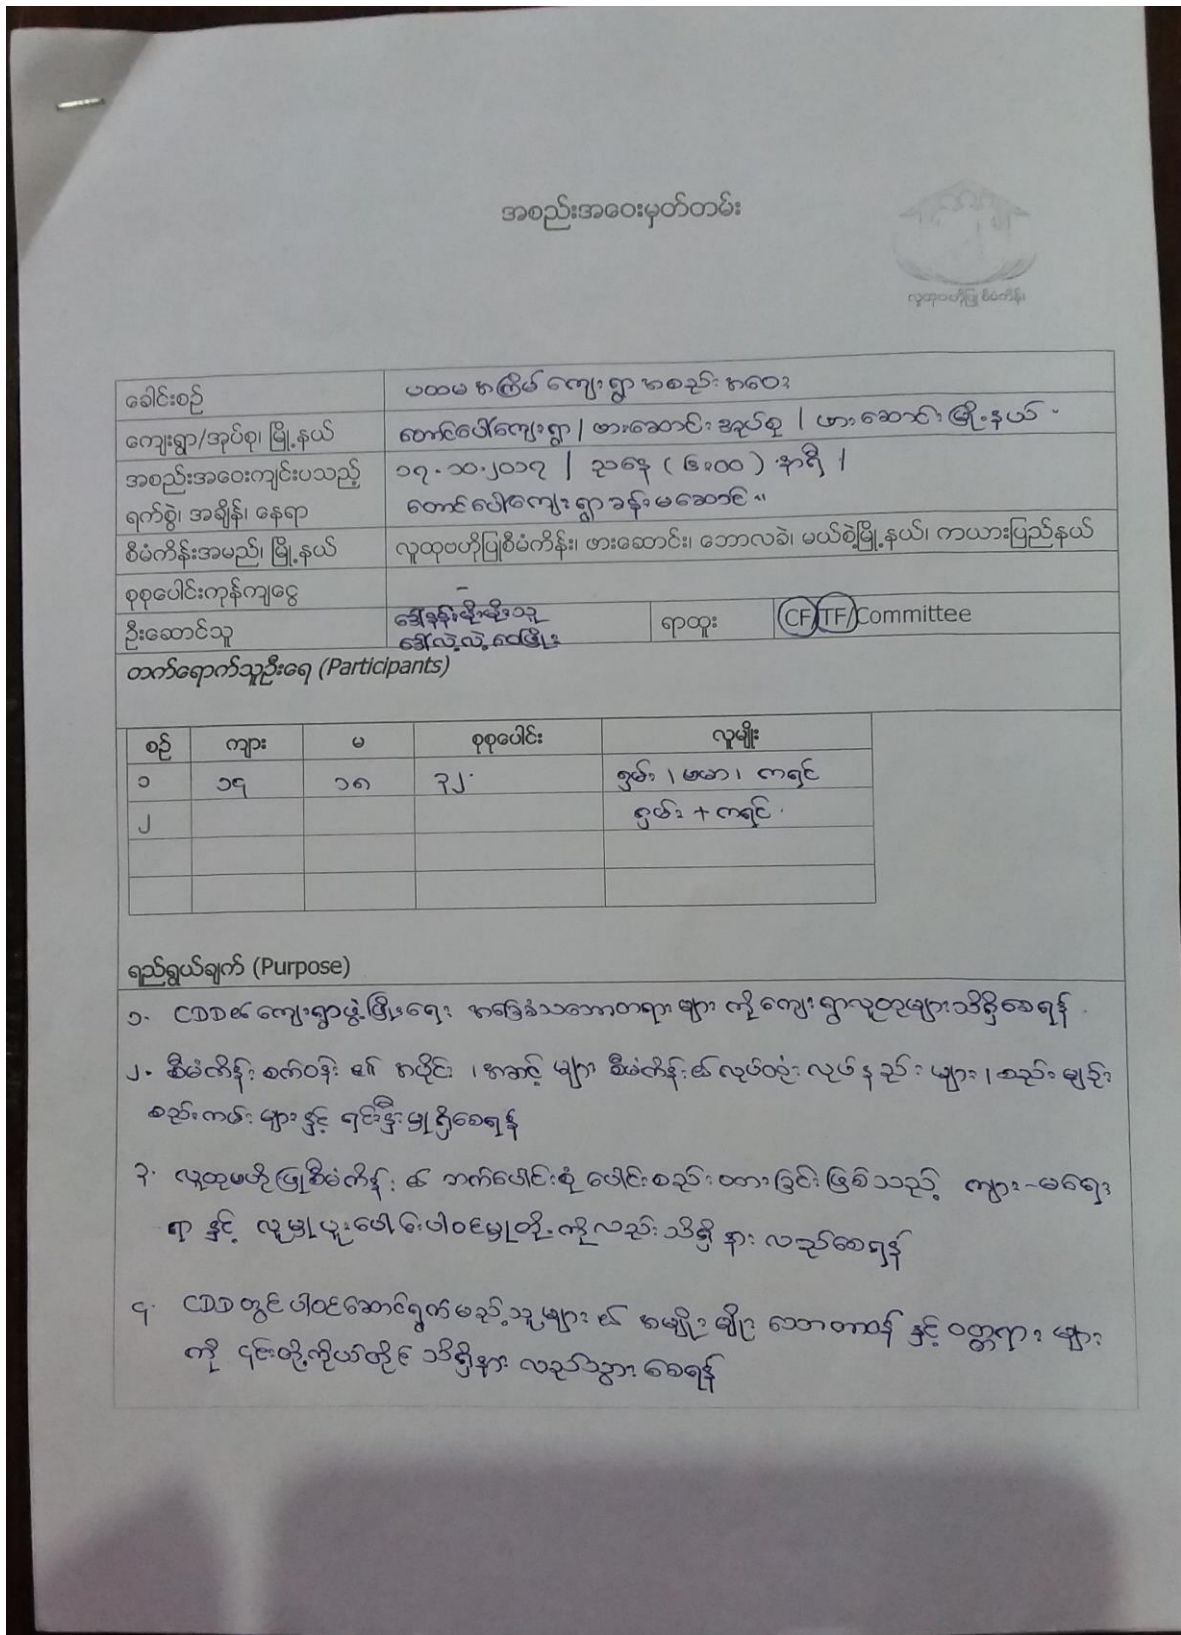 အစည်းအဝေးမှတ်တမ်း
လူထုဗဟိုပြုစီမံကိန်း
ခေါင်းစဉ် ပထမအကြိမ် ကျေးရွာအစည်းအဝေး
ကျေးရွာ/အုပ်စု၊ မြို့နယ် တောင်ပေါ်ကျေးရွာ / ဖားဆောင်းအုပ်စု / ဖားဆောင်းမြို့နယ်
အစည်းအဝေးကျင်းပသည့် ၁၇.၁၀.၂၀၁၇ / ညနေ (၆း၀၀) နာရီ /
ရက်စွဲ၊ အချိန်၊ နေရာ တောင်ပေါ်ကျေးရွာခန်းမဆောင်။
စီမံကိန်းအမည်၊ မြို့နယ် လူထုဗဟိုပြုစီမံကိန်း၊ ဖားဆောင်း၊ ဘောလခဲ၊ မယ်စဲ့မြို့နယ်၊ ကယားပြည်နယ်
စုစုပေါင်းကုန်ကျငွေ –
ဦးဆောင်သူ ဒေါ်နန်းမိုးမိုးသူ ရာထူး CF/TF/Committee
ဒေါ်လဲ့လဲ့ဝေဖြိုး
တက်ရောက်သူဦးရေ (Participants)
စဉ် ကျား မ စုစုပေါင်း လူမျိုး
၁ ၁၄ ၁၈ ၃၂ ရှမ်း ၊ ဗမာ ၊ ကရင်
၂ ရှမ်း + ကရင်
ရည်ရွယ်ချက် (Purpose)
၁. CDD ၏ ကျေးရွာဖွံ့ဖြိုးရေး အခြေခံသဘောတရားများ ကို ကျေးရွာလူထုများသိရှိစေရန်
၂. စီမံကိန်းစက်ဝန်း ၏ အပိုင်း ၊ အဆင့် များ စီမံကိန်း၏ လုပ်ထုံးလုပ်နည်းများ ၊ စည်းမျဉ်း
စည်းကမ်းများနှင့် ရင်းနှီးမှုရှိစေရန်
၃. လူထုဗဟိုပြုစီမံကိန်း ၏ ဘက်ပေါင်းစုံ ပေါင်းစည်းထားခြင်းဖြစ်သည့် ကျား-မရေး
ရာ နှင့် လူမှုပူးပေါင်းပါဝင်မှုတို့ကိုလည်း သိရှိ နားလည်စေရန်
၄. CDD တွင် ပါဝင်ဆောင်ရွက်မည့်သူများ ၏ အမျိုးမျိုးသောတာဝန် နှင့် ဝတ္တရားများ
ကို ၎င်းတို့ကိုယ်တိုင် သိရှိနားလည်သွားစေရန်